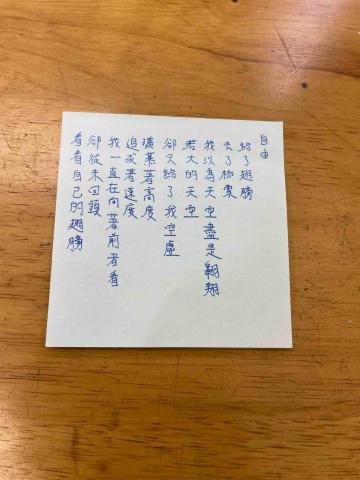 自由
給了翅膀
去了
我以為天空盡是翱翔
若大的天空
卻又給了我空虛
著高度
追求著速度
我一直在向著前者看
卻從未回頭
看看自己的翅膀